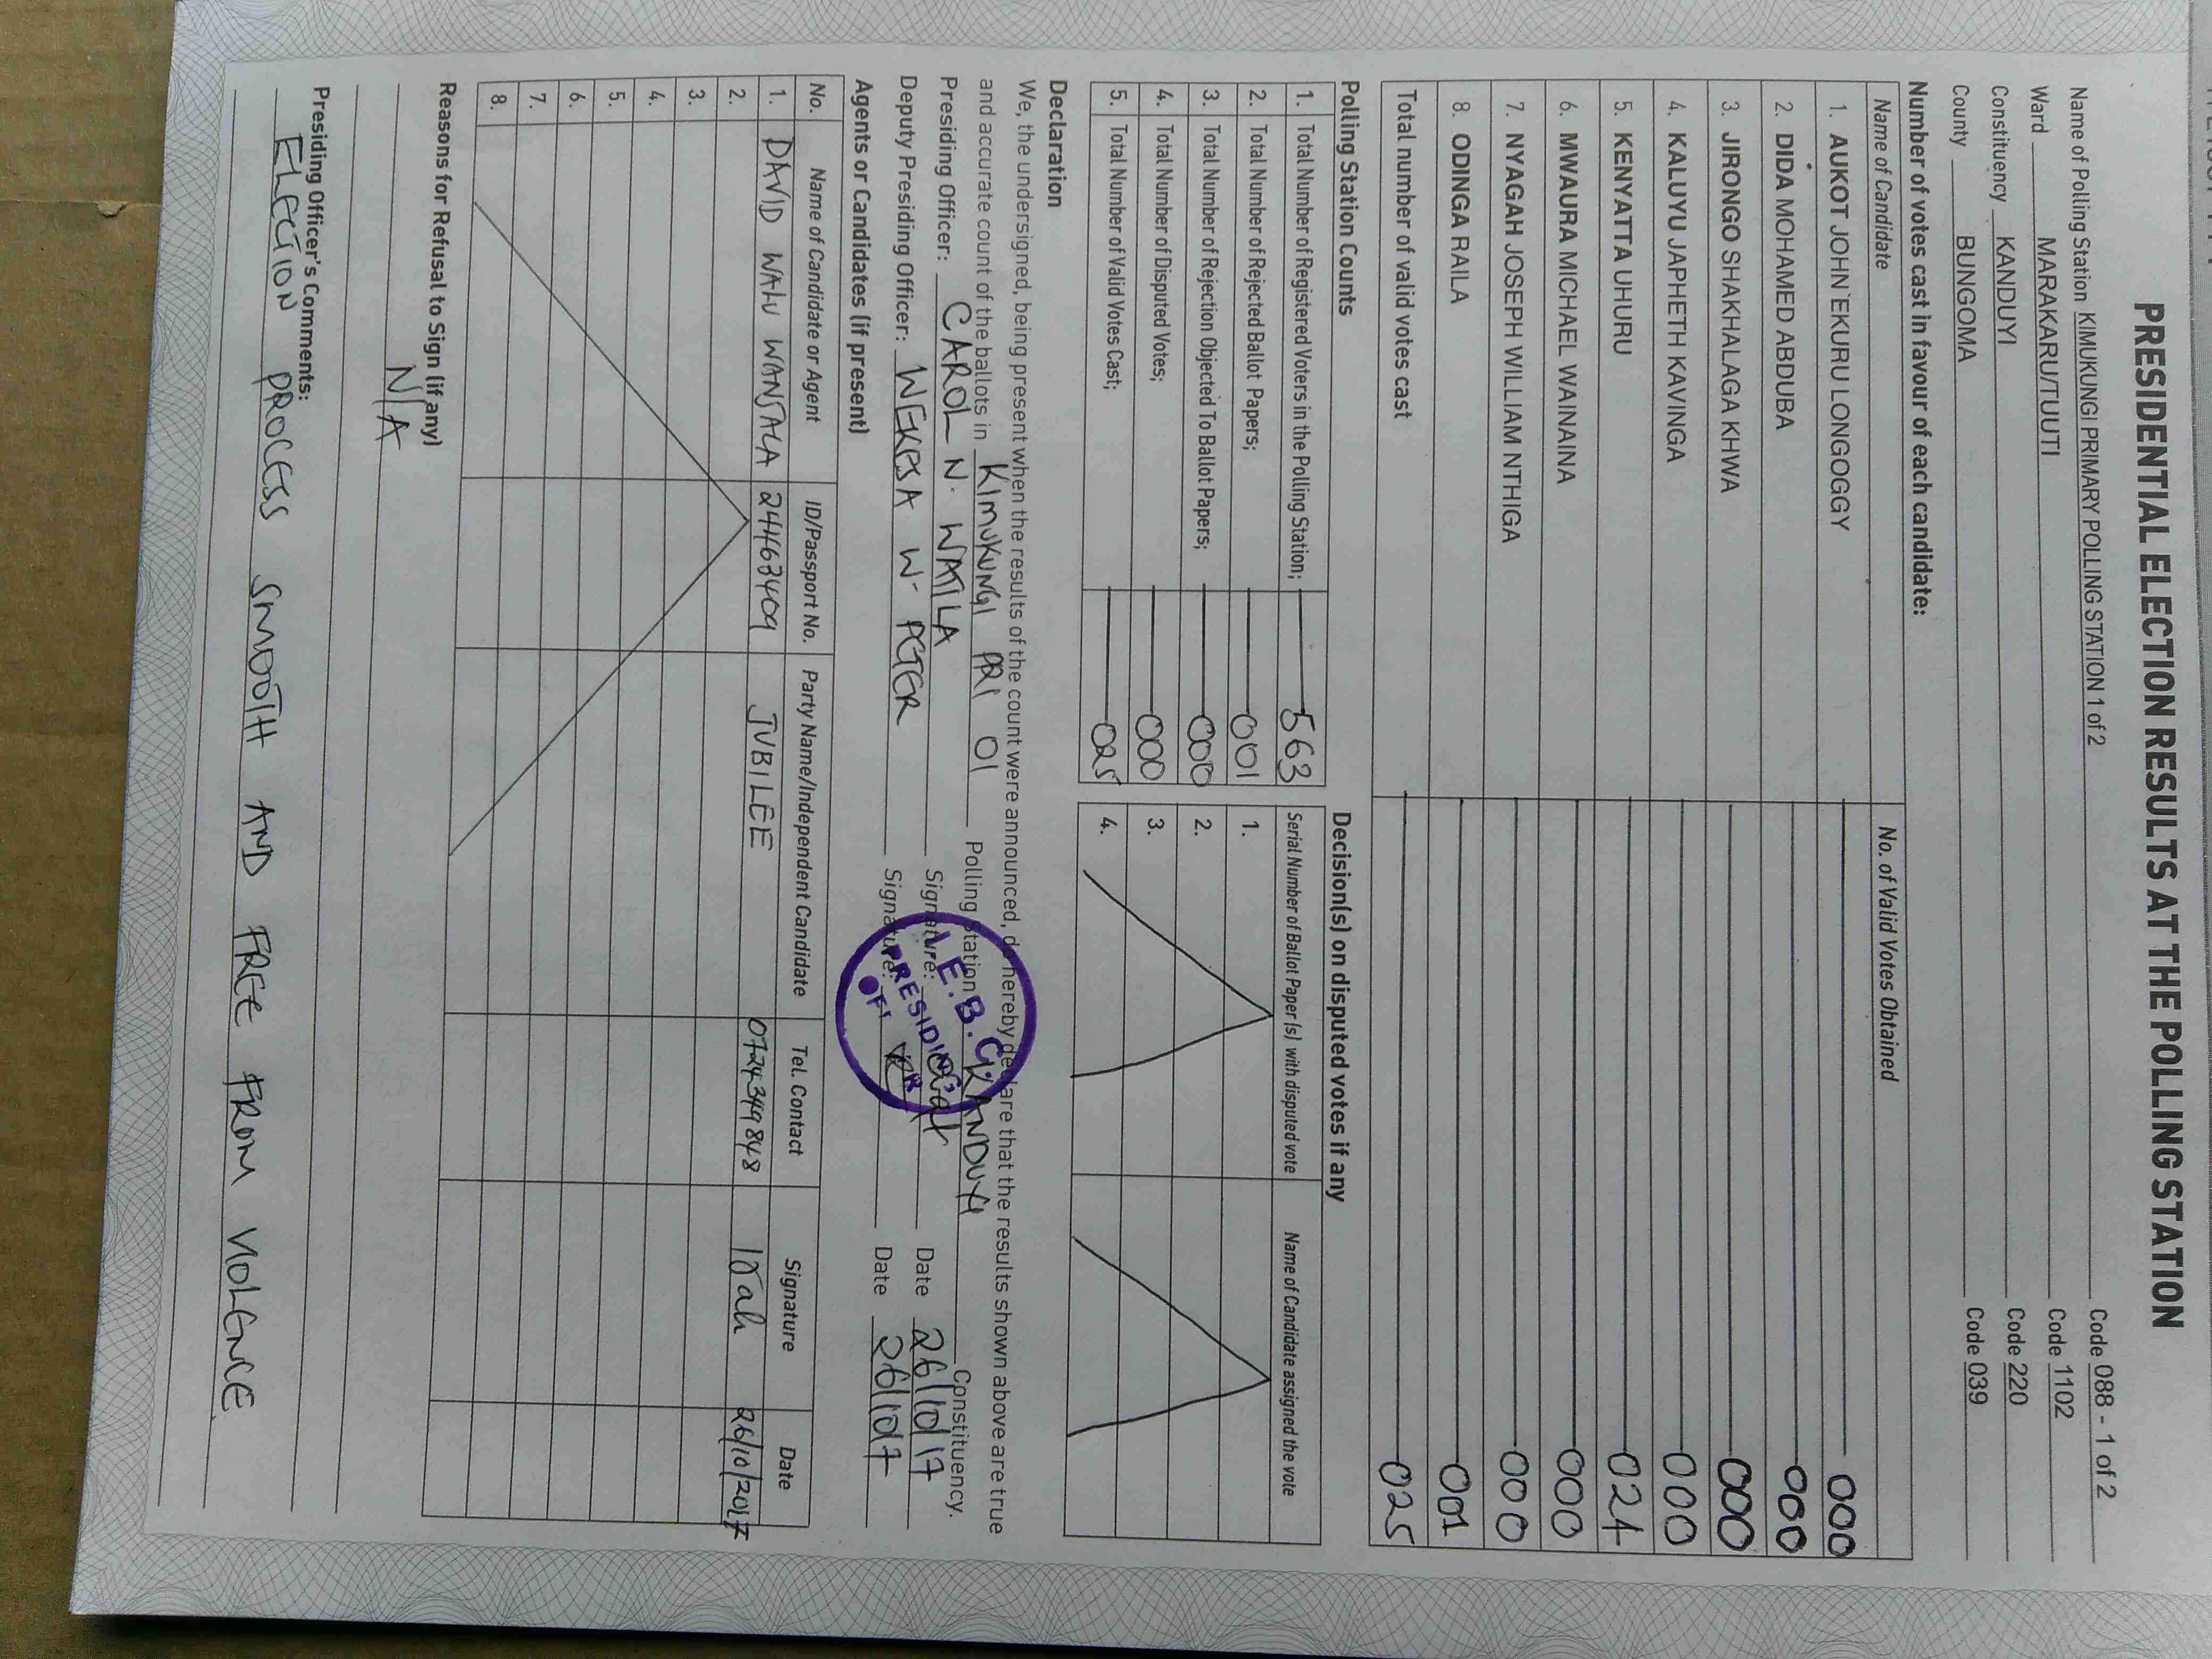 PRESIDENTIAL ELECTION RESULTS AT THE POLLING STATION
Name of Polling Station KIMUKUNGI PRIMARY POLLING STATION 1 of 2 Code 088 - 1 of 2
Ward MARAKARU/TUUTI Code 1102
Constituency KANDUYI Code 220
County BUNGOMA Code 039
Number of votes cast in favour of each candidate:
Name of Candidate No. of Valid Votes Obtained
1. AUKOT JOHN EKURU LONGOGGY 000
2. DIDA MOHAMED ABDUBA 000
3. JIRONGO SHAKHALAGA KHWA 000
4. KALUYU JAPHETH KAVINGA 000
5. KENYATTA UHURU 024
6. MWAURA MICHAEL WAINAINA 000
7. NYAGAH JOSEPH WILLIAM NTHIGA 000
8. ODINGA RAILA 001
Total number of valid votes cast 025
Polling Station Counts
1. Total Number of Registered Voters in the Polling Station; 563
2. Total Number of Rejected Ballot Papers; 001
3. Total Number of Rejection Objected To Ballot Papers; 000
4. Total Number of Disputed Votes; 000
5. Total Number of Valid Votes Cast; 025
Decision(s) on disputed votes if any
Serial Number of Ballot Paper (s) with disputed vote Name of Candidate assigned the vote
1.
2.
3.
4.
Declaration
We, the undersigned, being present when the results of the count were announced, do hereby declare that the results shown above are true
and accurate count of the ballots in KIMUKUNGI PRI 01 Polling Station KANDUYI Constituency.
Presiding Officer: CAROL N. WATILA Signature: Date 26/10/17
Deputy Presiding Officer: WEKESA W. PETER Signature: Date 26/10/17
I.E.B.C.
PRESIDING
Agents or Candidates (if present)
No. Name of Candidate or Agent ID/Passport No. Party Name/Independent Candidate Tel. Contact Signature Date
1. DAVID WALU WANJALA 24463409 JUBILEE 0724349848 26/10/2017
2.
3.
4.
5.
6.
7.
8.
Reasons for Refusal to Sign (if any)
N/A
Presiding Officer's Comments:
ELECTION PROCESS SMOOTH AND FREE FROM VIOLENCE